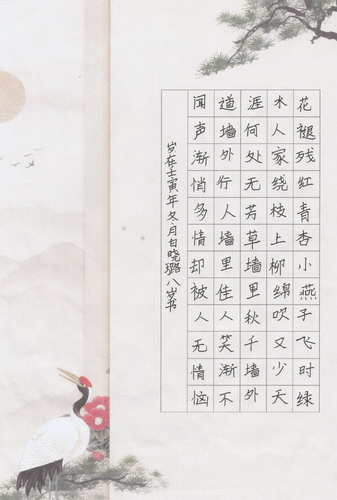 花褪残红青杏小燕子飞时绿
水人家绕枝上柳绵吹又少天
涯何处无芳草墙里秋千墙外
道墙外行人墙里佳人笑渐不
闻声渐悄多情却被人无情恼
岁在壬寅年冬月白晓璐八岁书